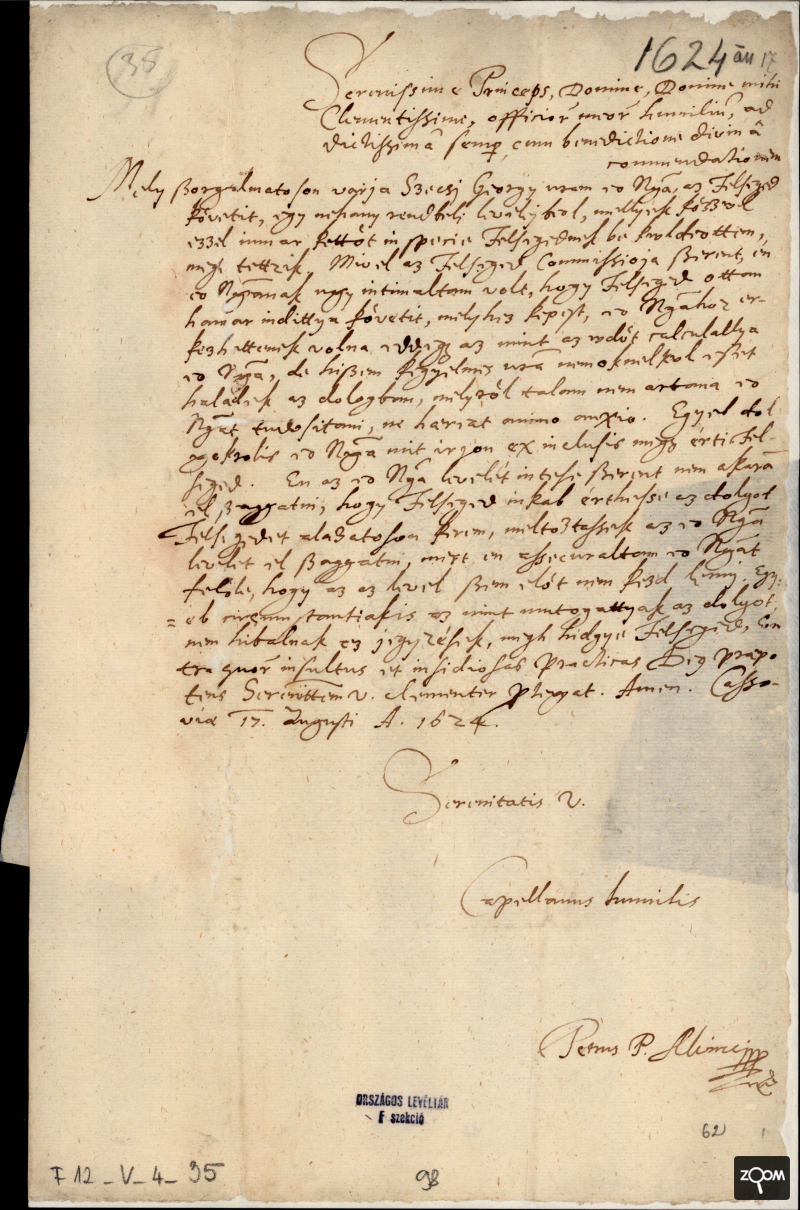 35
1624 āu 17
Serenissime Princeps, Domine, Domine mihi
Clementissime, officior̄ meor̄ humiliū, ad
dictissimā semp̱, cum benedictione divinâ
commendationem
Mely ßorgalmatoson varja Szecsj Georgy uram eo Ngā, az Felseged
követit, egy nehany rendbeli levelejbeol, mellyek közzöl
ezzel immar kettöt in specie Felsegednek be küldeottem,
megh tettzik. Mivel az Felseged Commissioja ßerent, en
eo Ngānak ugy intimaltam volt, hogy Felseged ottan
hamar indittya követit, melyhez kepest, eo Ngāhoz er-
kezhettenek volna eddeg az mint az üdöt calculallya
eo Ngā, de hißem kegyelmes urā nem oknelkol esset
haladek az dologban, melyröl talam nem artana eo
Ngāt tudositani, ne haereat animo anxio. Egyel dol
gokrolis eo Ngā mit irjon ex inclusis megh érti Fel-
seged. En az eo Ngā levelét intese ßerent nem akarā
el ßaggatni, hogy Felseged inkab érthesse az dolgot
Felsegedet alaßatoson kerem, meltoztassek az eo Ngā
levelet el ßaggatni, mert en assecuraltam eo Ngāt
felöle, hogy az az level ßem elöt nem kezd lenni. Egy=
=eb circumstantiakis az mint mutogattyak az dolgot,
nem hibalnak ez jegyzések, megh hidgye Felseged, Con
tra quor̄ insultus et insidiosas practicas Deus præpo
tens Serenittem v. clementer ꝓtegat. Amen. Casso-
viæ 17. Augusti A. 1624.
Serenitatis V.
Capellanus humilis
Petrus P. Alvinci
ORSZÁGOS LEVÉLTÁR
F szekció
62
F 12 - V - 4 - 35
98
ZOOM